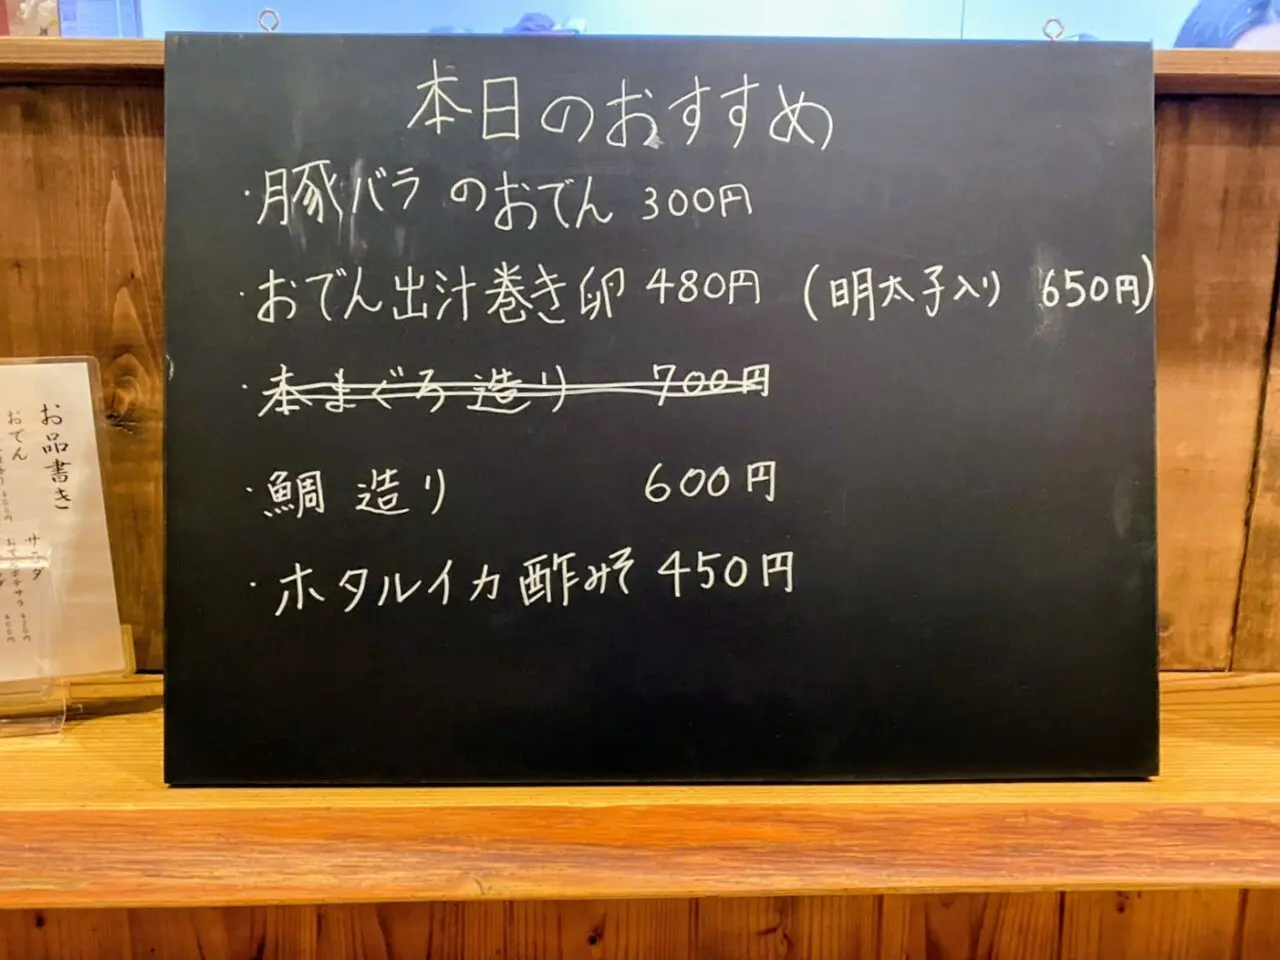 本日のおすすめ
・豚バラのおでん 300円
・おでん出汁巻き卵 480円 (明太子入り 650円)
・本まぐろ造り 700円
・鯛造り 600円
・ホタルイカ酢みそ 450円
お品書き
おでん
サラダ